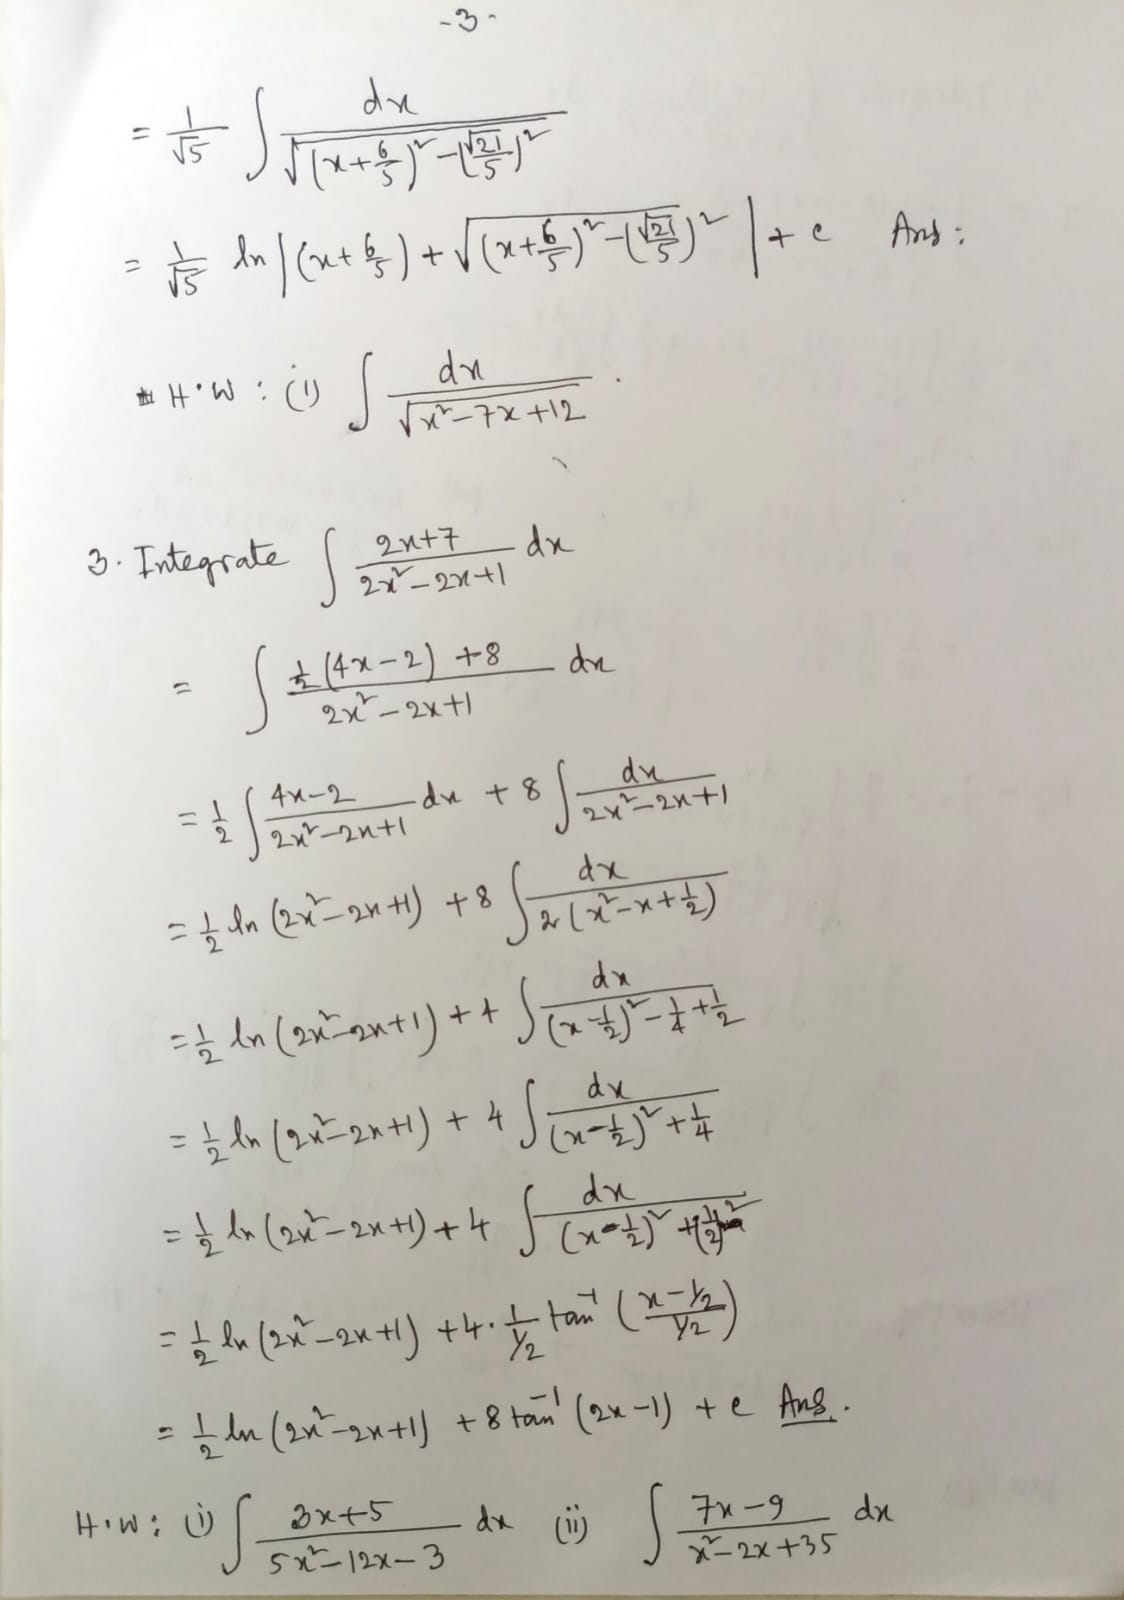 -3-
= 1/√5 ∫ dx / √((x+6/5)² - (√21/5)²)
= 1/√5 ln |(x+6/5) + √((x+6/5)² - (√21/5)²)| + c Ans:
* H.W: (i) ∫ dx / √(x²-7x+12) .
3. Integrate ∫ (2x+7)/(2x²-2x+1) dx
= ∫ (1/2(4x-2) +8)/(2x²-2x+1) dx
= 1/2 ∫ (4x-2)/(2x²-2x+1) dx + 8 ∫ dx/(2x²-2x+1)
= 1/2 ln (2x²-2x+1) + 8 ∫ dx/(2(x²-x+1/2))
= 1/2 ln (2x²-2x+1) + 4 ∫ dx/((x-1/2)² - 1/4 + 1/2)
= 1/2 ln (2x²-2x+1) + 4 ∫ dx/((x-1/2)² + 1/4)
= 1/2 ln (2x²-2x+1) + 4 ∫ dx/((x-1/2)² + (1/2)²)
= 1/2 ln (2x²-2x+1) + 4 · 1/(1/2) tan⁻¹ ((x-1/2)/(1/2))
= 1/2 ln (2x²-2x+1) + 8 tan⁻¹ (2x-1) + c Ans.
H.W: (i) ∫ (3x+5)/(5x²-12x-3) dx (ii) ∫ (7x-9)/(x²-2x+35) dx